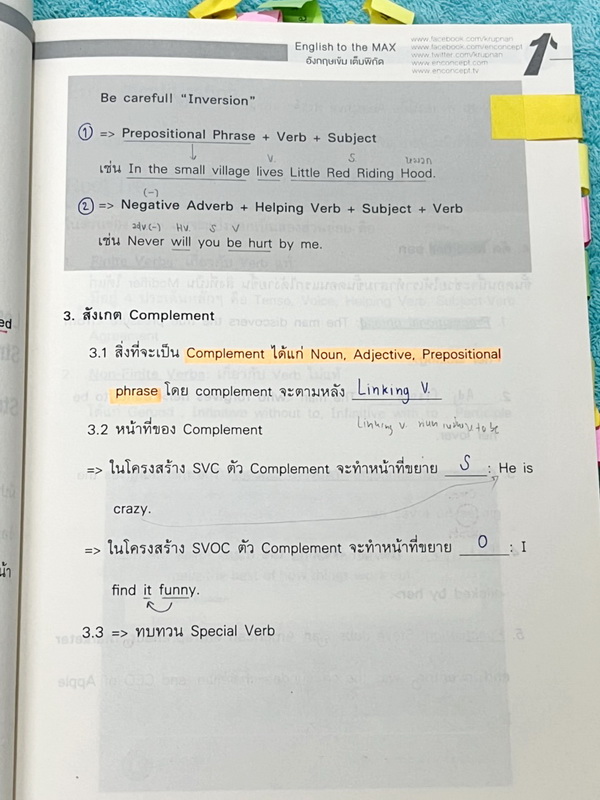 English to the MAX
อังกฤษเข้ม เต็มพิกัด
www.facebook.com/krupnan
www.facebook.com/enconcept
www.twitter.com/krupnan
www.enconcept.com
www.enconcept.tv
Be carefull “Inversion”
① => Prepositional Phrase + Verb + Subject
V. S. หมวก
เช่น In the small village lives Little Red Riding Hood.
(-)
② => Negative Adverb + Helping Verb + Subject + Verb
adv(-) HV. S V
เช่น Never will you be hurt by me.
ed
3. สังเกต Complement
3.1 สิ่งที่จะเป็น Complement ได้แก่ Noun, Adjective, Prepositional
phrase โดย complement จะตามหลัง Linking V.
3.2 หน้าที่ของ Complement
Linking V. to be
=> ในโครงสร้าง SVC ตัว Complement จะทำหน้าที่ขยาย S : He is
crazy.
=> ในโครงสร้าง SVOC ตัว Complement จะทำหน้าที่ขยาย O : I
find it funny.
3.3 => ทบทวน Special Verb